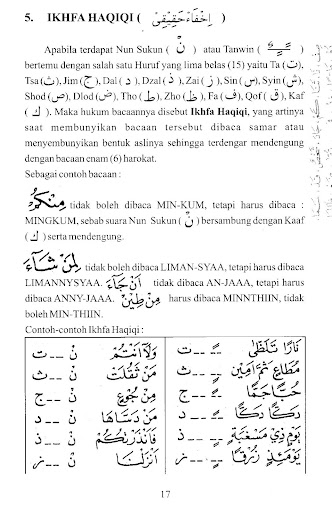 5. IKHFA HAQIQI ( اِخْفَاءْ حَقِيْقِيْ )
Apabila terdapat Nun Sukun ( نْ ) atau Tanwin ( ـًـٍـٌ )
bertemu dengan salah satu Huruf yang lima belas (15) yaitu Ta (ت),
Tsa (ث), Jim (ج), Dal (د), Dzal (ذ), Zai (ز), Sin (س), Syin (ش),
Shod (ص), Dlod (ض), Tho (ط), Zho (ظ), Fa (ف), Qof (ق), Kaf
(ك). Maka hukum bacaannya disebut Ikhfa Haqiqi, yang artinya
saat membunyikan bacaan tersebut dibaca samar atau
menyembunyikan bentuk aslinya sehingga terdengar mendengung
dengan bacaan enam (6) harokat.
Sebagai contoh bacaan :
مِنْكُمْ tidak boleh dibaca MIN-KUM, tetapi harus dibaca :
MINGKUM, sebab suara Nun Sukun ( نْ ) bersambung dengan Kaaf
( ك ) serta mendengung.
لِمَنْ شَآءَ tidak boleh dibaca LIMAN-SYAA, tetapi harus dibaca
LIMANNYSYAA. اَنْ جَآءَ tidak dibaca AN-JAAA, tetapi harus
dibaca ANNY-JAAA. مِنْ طِيْنٍ harus dibaca MINNTHIIN, tidak
boleh MIN-THIIN.
Contoh-contoh Ikhfa Haqiqi :
نَارًا تَلَظّٰى ـًـٍـٌ ــ ت وَلَآ اَنْتُمْ نْ ــ ت
مُطَاعٍ ثَمَّ اَمِيْنٍ ـًـٍـٌ ــ ث مَنْ ثَقُلَتْ نْ ــ ث
حُبًّا جَمًّا ـًـٍـٌ ــ ج مِنْ جُوْعٍ نْ ــ ج
دَكًّا دَكًّا ـًـٍـٌ ــ د مَنْ دَسّٰىهَا نْ ــ د
يَوْمٍ ذِيْ مَسْغَبَةٍ ـًـٍـٌ ــ ذ فَاَنْذَرْتُكُمْ نْ ــ ذ
يَوْمَئِذٍ زُرْقًا ـًـٍـٌ ــ ز اَنْزَلْنَا نْ ــ ز
17